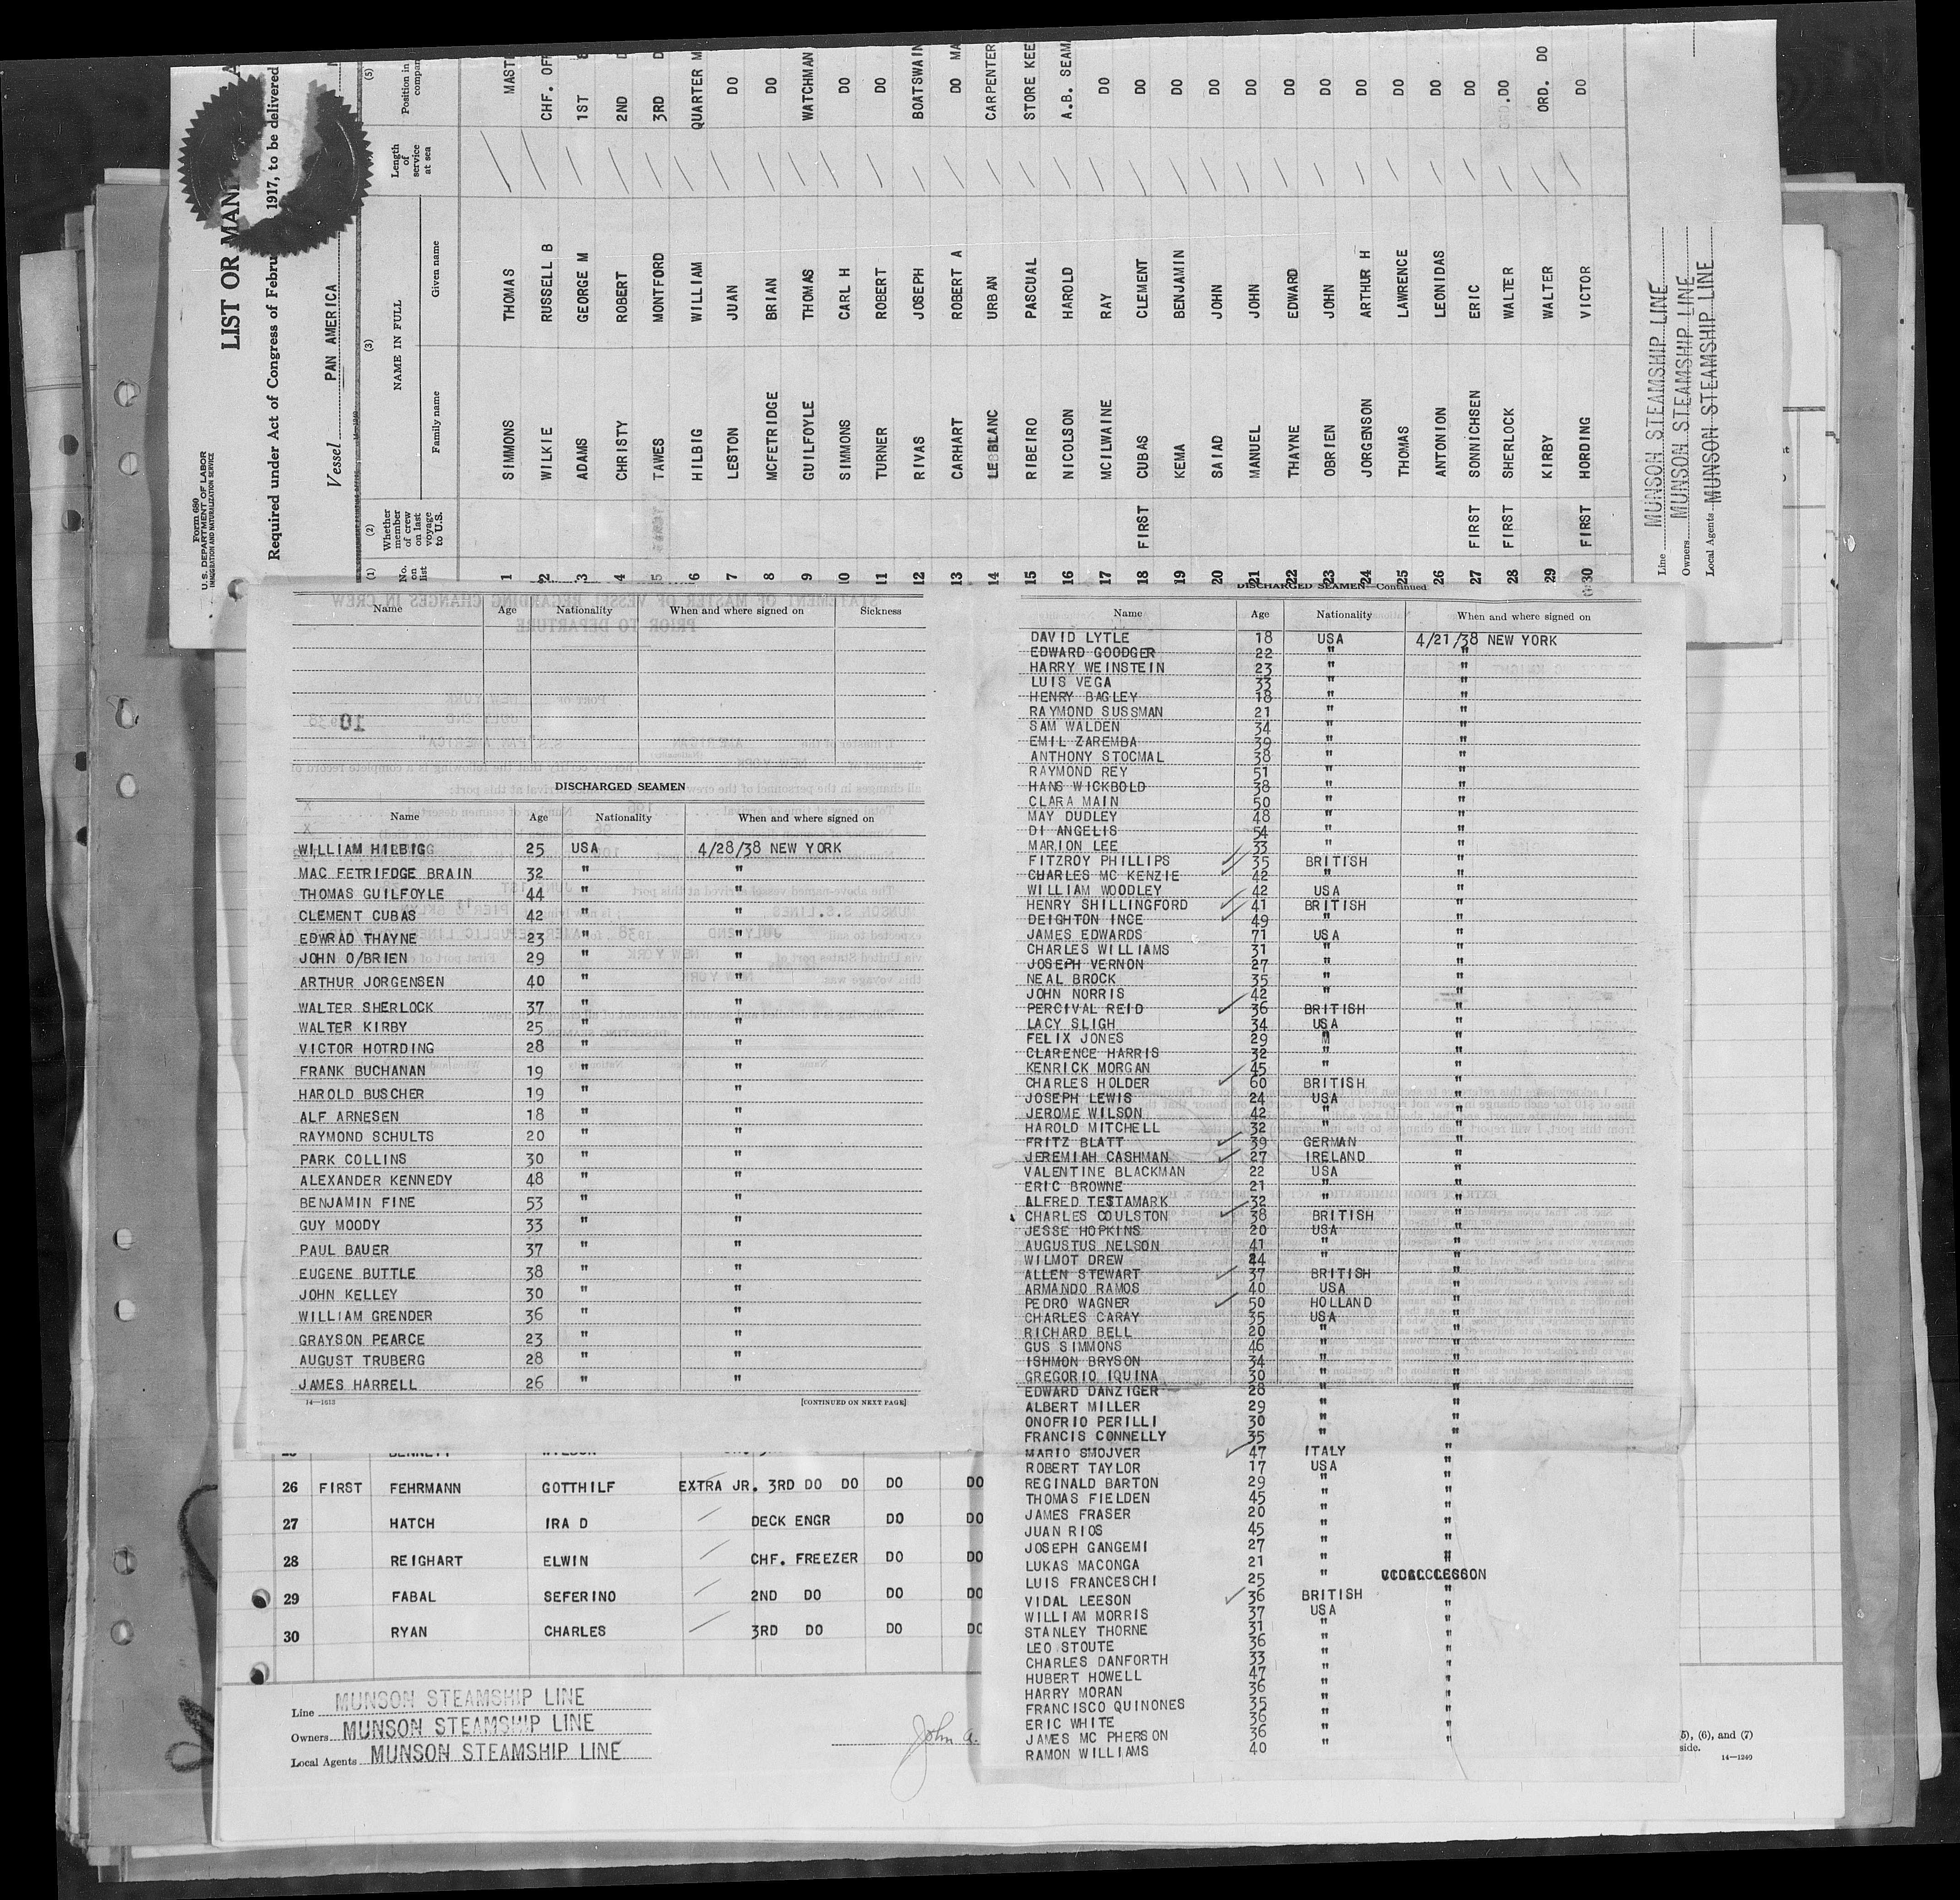 Form 680
U. S. DEPARTMENT OF LABOR
IMMIGRATION AND NATURALIZATION SERVICE
LIST OR
Required under Act of Congress of 1917, to be delivered
Vessel PAN AMERICA
(1) (2) (3) (5)
No. on list Whether member of crew on last voyage to U.S. NAME IN FULL Length of service at sea Position in
Family name Given name
1 SIMMONS THOMAS
2 WILKIE RUSSELL B CHF.
3 ADAMS GEORGE M 1ST
4 CHRISTY ROBERT 2ND
5 TAWES MONTFORD 3RD
6 HILBIG WILLIAM QUARTER M
7 LESTON JUAN DO
8 MCFETRIDGE BRIAN DO
9 GUILFOYLE THOMAS WATCHMAN
10 SIMMONS CARL H DO
11 TURNER ROBERT DO
12 RIVAS JOSEPH BOATSWAIN
13 CARHART ROBERT A DO MA
14 LEBLANC URBAN CARPENTER
15 RIBEIRO PASCUAL STORE KEE
16 NICOLSON HAROLD A.B. SEAM
17 MCILWAINE RAY DO
18 FIRST CUBAS CLEMENT DO
19 KEMA BENJAMIN DO
20 SAIAD JOHN DO
21 MANUEL JOHN DO
22 THAYNE EDWARD DO
23 OBRIEN JOHN DO
24 JORGENSON ARTHUR H DO
25 THOMAS LAWRENCE DO
26 ANTONION LEONIDAS DO
27 FIRST SONNICHSEN ERIC DO
28 FIRST SHERLOCK WALTER DO
29 KIRBY WALTER ORD. DO
30 FIRST HORDING VICTOR DO
Line MUNSON STEAMSHIP LINE
Owners MUNSON STEAMSHIP LINE
Local Agents MUNSON STEAMSHIP LINE
Name Age Nationality When and where signed on Sickness
DISCHARGED SEAMEN
Name Age Nationality When and where signed on
WILLIAM HILBIG 25 USA 4/28/38 NEW YORK
MAC FETRIFDGE BRAIN 32 " "
THOMAS GUILFOYLE 44 " "
CLEMENT CUBAS 42 " "
EDWRAD THAYNE 23 " "
JOHN O/BRIEN 29 " "
ARTHUR JORGENSEN 40 " "
WALTER SHERLOCK 37 " "
WALTER KIRBY 25 " "
VICTOR HOTRDING 28 " "
FRANK BUCHANAN 19 " "
HAROLD BUSCHER 19 " "
ALF ARNESEN 18 " "
RAYMOND SCHULTS 20 " "
PARK COLLINS 30 " "
ALEXANDER KENNEDY 48 " "
BENJAMIN FINE 53 " "
GUY MOODY 33 " "
PAUL BAUER 37 " "
EUGENE BUTTLE 38 " "
JOHN KELLEY 30 " "
WILLIAM GRENDER 36 " "
GRAYSON PEARCE 23 " "
AUGUST TRUBERG 28 " "
JAMES HARRELL 26 " "
14—1613 [CONTINUED ON NEXT PAGE]
DISCHARGED SEAMEN—Continued
Name Age Nationality When and where signed on
DAVID LYTLE 18 USA 4/21/38 NEW YORK
EDWARD GOODGER 22 " "
HARRY WEINSTEIN 23 " "
LUIS VEGA 33 " "
HENRY BAGLEY 18 " "
RAYMOND SUSSMAN 21 " "
SAM WALDEN 34 " "
EMIL ZAREMBA 39 " "
ANTHONY STOCMAL 38 " "
RAYMOND REY 51 " "
HANS WICKBOLD 38 " "
CLARA MAIN 50 " "
MAY DUDLEY 48 " "
DI ANGELIS 54 " "
MARION LEE 33 " "
FITZROY PHILLIPS 35 BRITISH "
CHARLES MC KENZIE 42 " "
WILLIAM WOODLEY 42 USA "
HENRY SHILLINGFORD 41 BRITISH "
DEIGHTON INCE 49 " "
JAMES EDWARDS 71 USA "
CHARLES WILLIAMS 31 " "
JOSEPH VERNON 27 " "
NEAL BROCK 35 " "
JOHN NORRIS 42 " "
PERCIVAL REID 36 BRITISH "
LACY SLIGH 34 USA "
FELIX JONES 29 " "
CLARENCE HARRIS 32 " "
KENRICK MORGAN 45 " "
CHARLES HOLDER 60 BRITISH "
JOSEPH LEWIS 24 USA "
JEROME WILSON 42 " "
HAROLD MITCHELL 32 " "
FRITZ BLATT 39 GERMAN "
JEREMIAH CASHMAN 27 IRELAND "
VALENTINE BLACKMAN 22 USA "
ERIC BROWNE 21 " "
ALFRED TESTAMARK 32 " "
CHARLES COULSTON 38 BRITISH "
JESSE HOPKINS 20 USA "
AUGUSTUS NELSON 41 " "
WILMOT DREW 24 " "
ALLEN STEWART 37 BRITISH "
ARMANDO RAMOS 40 USA "
PEDRO WAGNER 50 HOLLAND "
CHARLES CARAY 35 USA "
RICHARD BELL 20 " "
GUS SIMMONS 46 " "
ISHMON BRYSON 34 " "
GREGORIO IQUINA 30 " "
EDWARD DANZIGER 28 " "
ALBERT MILLER 29 " "
ONOFRIO PERILLI 30 " "
FRANCIS CONNELLY 35 " "
MARIO SMOJVER 47 ITALY "
ROBERT TAYLOR 17 USA "
REGINALD BARTON 29 " "
THOMAS FIELDEN 45 " "
JAMES FRASER 20 " "
JUAN RIOS 45 " "
JOSEPH GANGEMI 27 " "
LUKAS MACONGA 21 " "
LUIS FRANCESCHI 25 "
VIDAL LEESON 36 BRITISH "
WILLIAM MORRIS 37 USA "
STANLEY THORNE 31 " "
LEO STOUTE 36 " "
CHARLES DANFORTH 33 " "
HUBERT HOWELL 47 " "
HARRY MORAN 36 " "
FRANCISCO QUINONES 35 " "
ERIC WHITE 36 " "
JAMES MC PHERSON 36 " "
RAMON WILLIAMS 40
26 FIRST FEHRMANN GOTTHILF EXTRA JR. 3RD DO DO DO DO
27 HATCH IRA D DECK ENGR DO DO
28 REIGHART ELWIN CHF. FREEZER DO DO
29 FABAL SEFERINO 2ND DO DO DO
30 RYAN CHARLES 3RD DO DO DO
Line MUNSON STEAMSHIP LINE
Owners MUNSON STEAMSHIP LINE
Local Agents MUNSON STEAMSHIP LINE
John A.
(6), and (7)
side.
14—1240